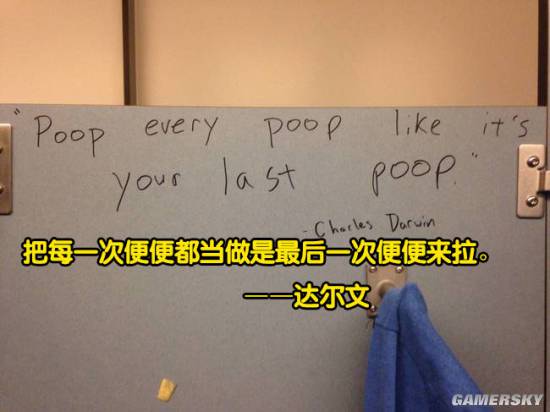 "Poop every poop like it's
your last poop."
- Charles Darwin
把每一次便便都当做是最后一次便便来拉。
——达尔文
GAMERSKY